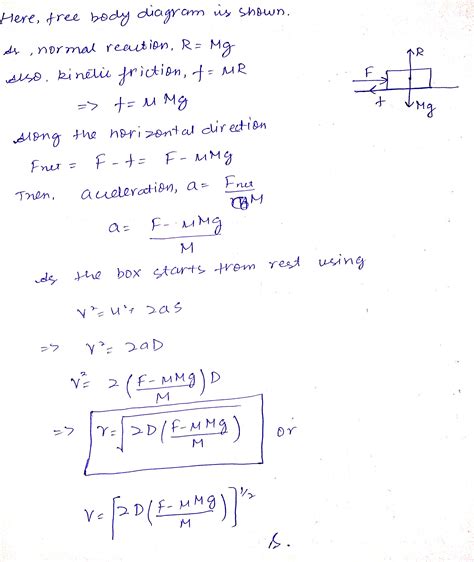 Here, free body diagram is shown.
As, normal reaction, R = Mg
Also, kinetic friction, f = μR
=> f = μMg
Along the horizontal direction
Fnet = F - f = F - μMg
Then, acceleration, a = Fnet/M
a = (F - μMg)/M
As the box starts from rest using
v² = u² + 2as
=> v² = 2aD
v² = 2((F - μMg)/M)D
=> v = √(2D((F - μMg)/M)) or
v = [2D((F - μMg)/M)]^1/2
R
F
f
Mg